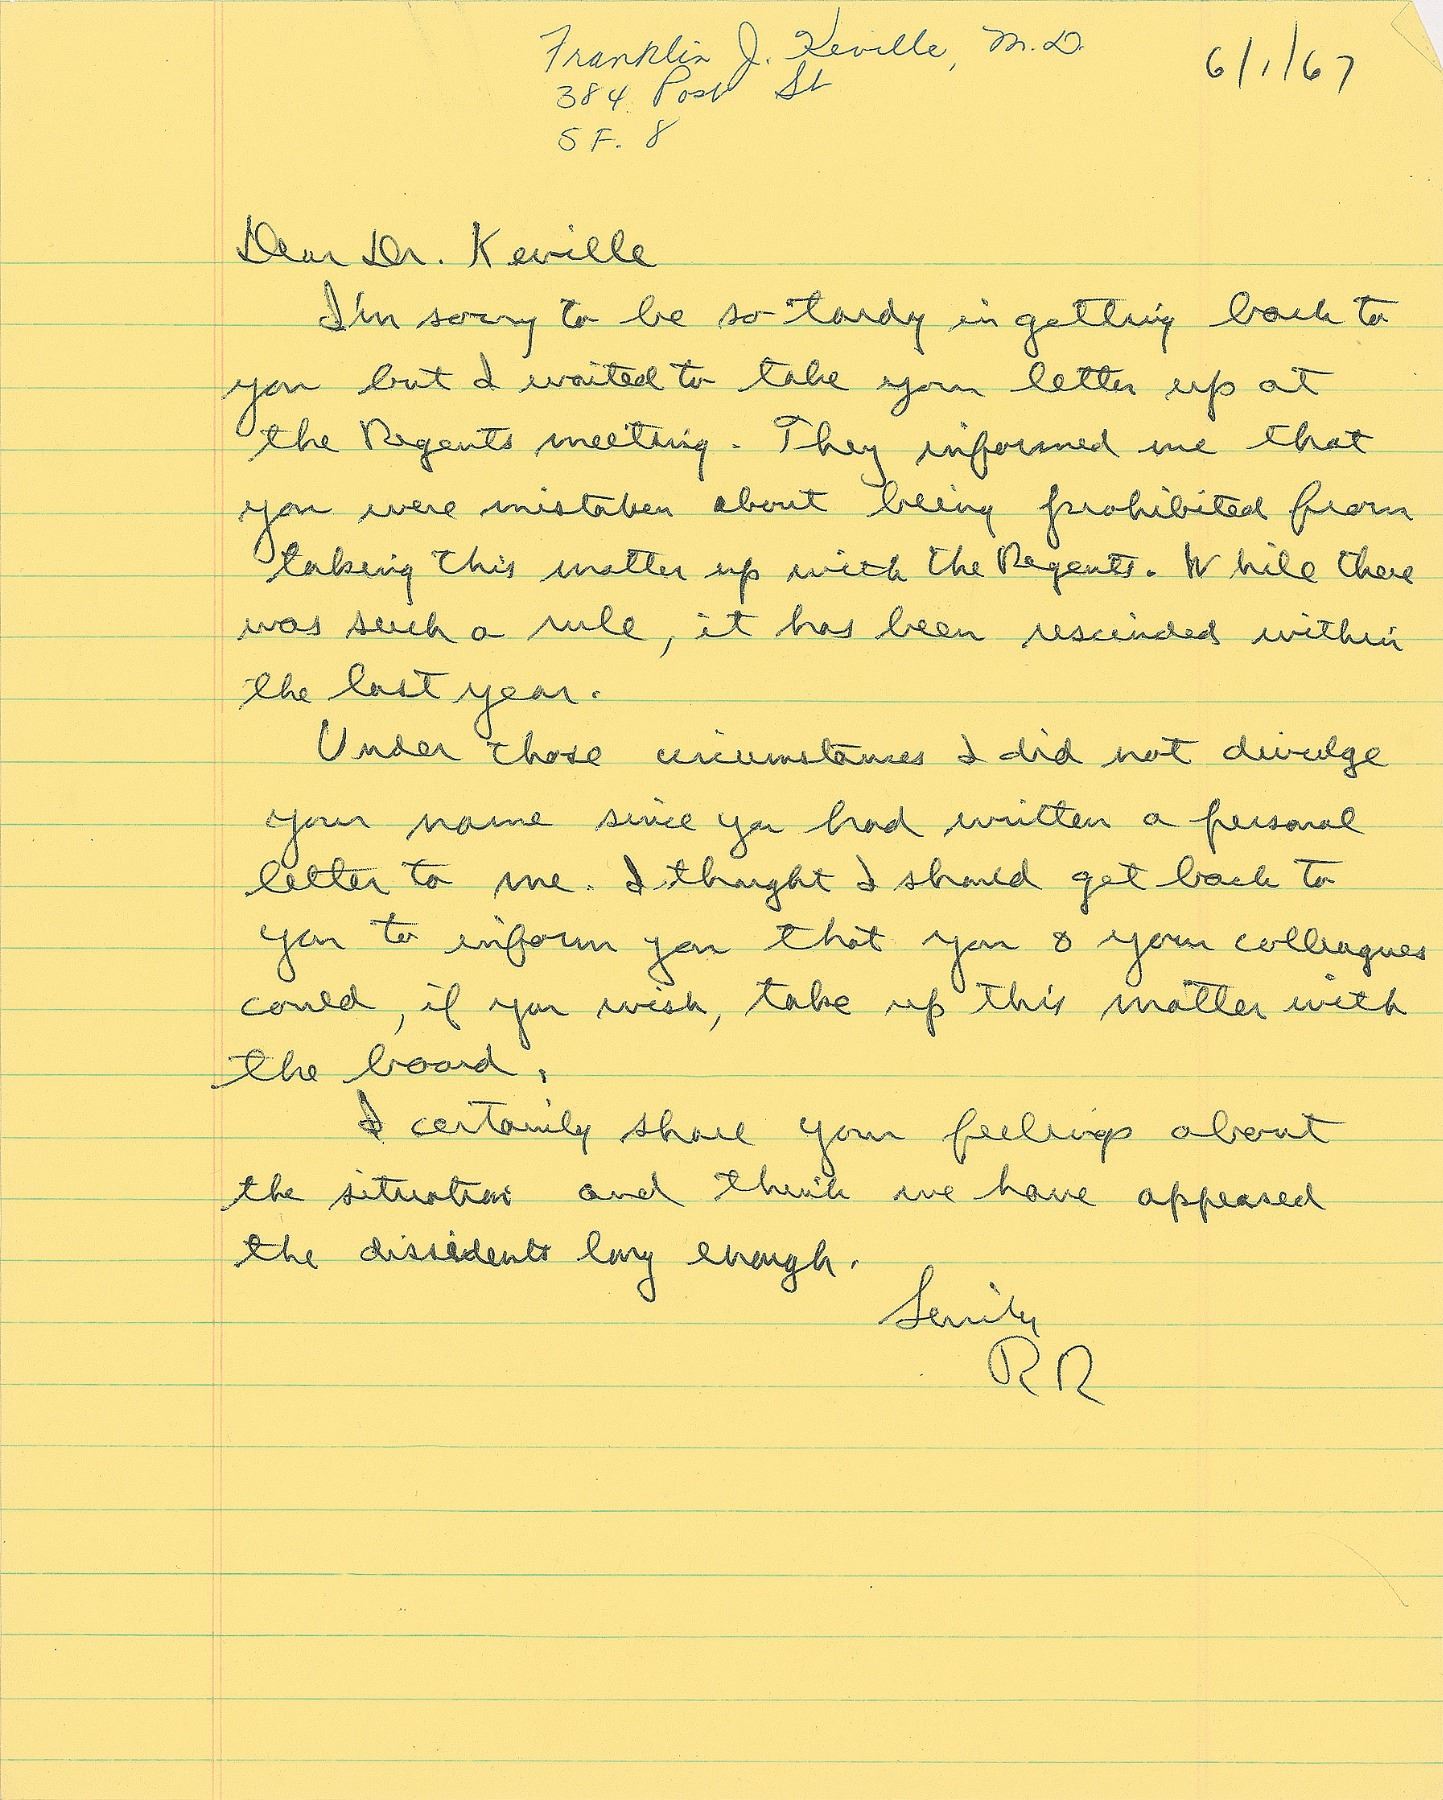 Franklin J. Keville, M.D.
6/1/67
384 Post St
S F. 8
Dear Dr. Keville
I'm sorry to be so tardy in getting back to
you but I waited to take your letter up at
the Regents meeting. They informed me that
you were mistaken about being prohibited from
taking this matter up with the Regents. While there
was such a rule, it has been rescinded within
the last year.
Under those circumstances I did not divulge
your name since you had written a personal
letter to me. I thought I should get back to
you to inform you that you & your colleagues
could, if you wish, take up this matter with
the board.
I certainly share your feelings about
the situation and think we have appeased
the dissidents long enough.
RR